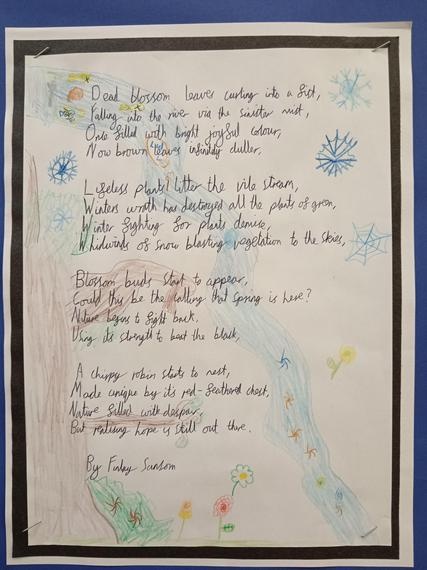 Dead blossom leaves curling into a fist,
Falling into the river via the sinister mist,
One filled with bright joyful colour,
Now brown leaves infinitly duller,
Lifeless plants litter the vile stream,
Winters wrath has destroyed all the plants of green,
Winter fighting for plants demise,
Whirlwinds of snow blasting vegetation to the skies,
Blossom buds start to appear,
Could this be the calling that spring is here?
Nature begins to fight back,
Using its strength to beat the black,
A chirpy robin starts to nest,
Made unique by its red-feathered chest,
Nature filled with despair,
But realising hope is still out there.
By Finlay Sansom